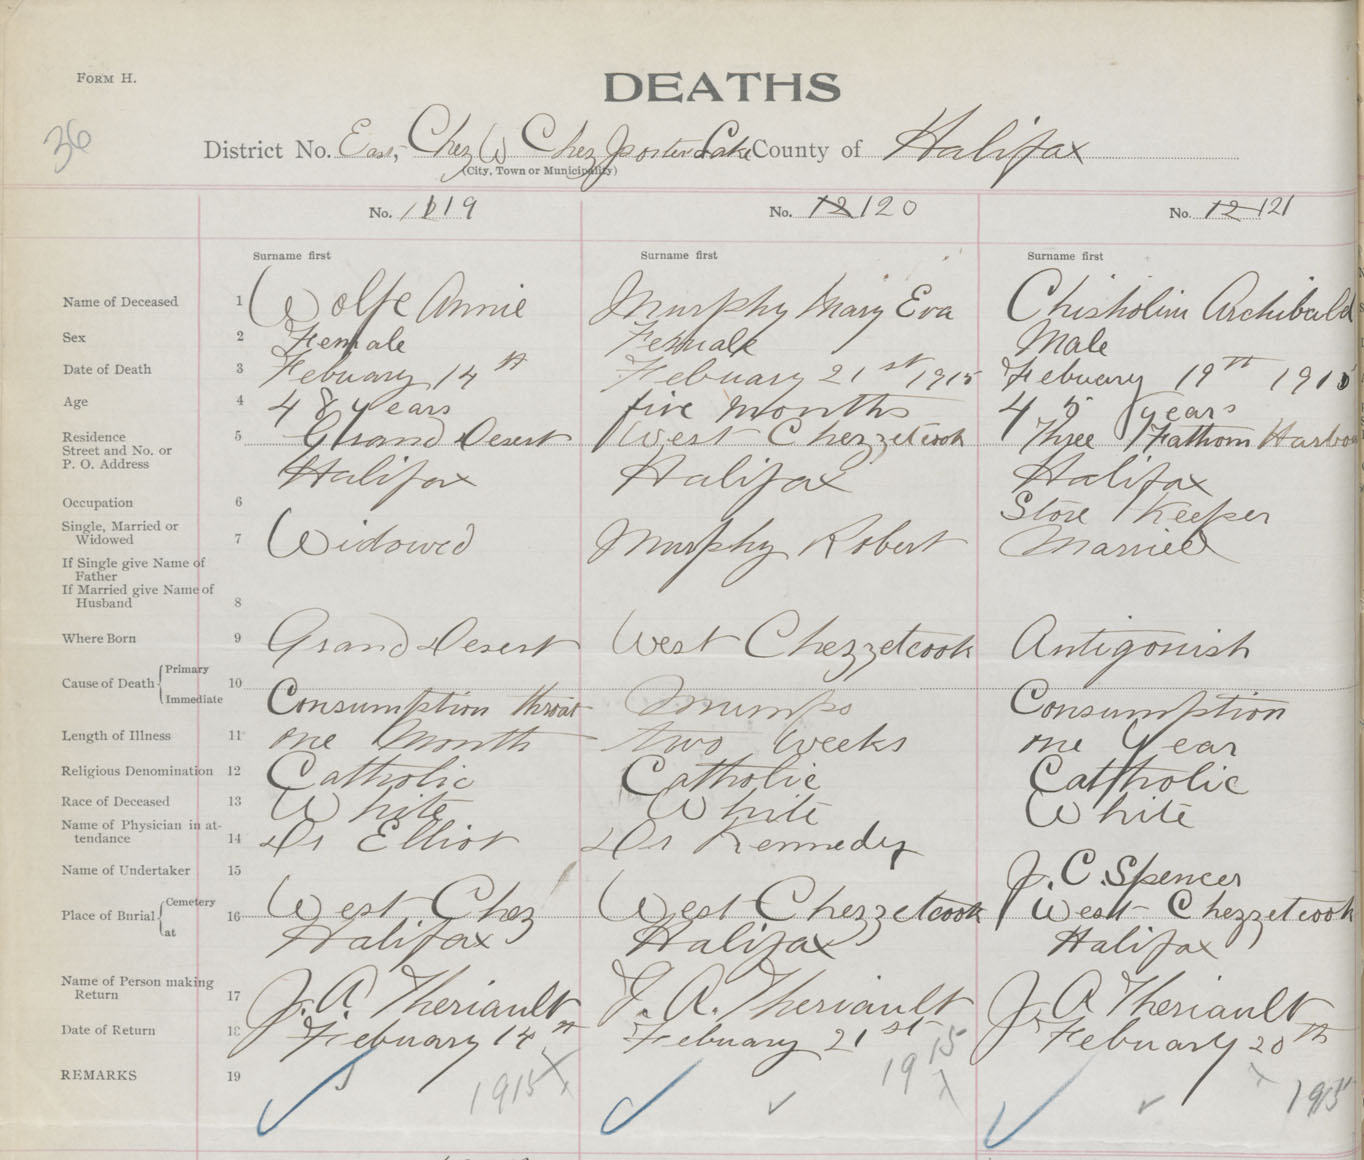 FORM H.
DEATHS
36
District No. East, Chez W Chez Porters Lake County of Halifax
(City, Town or Municipality)
No. 119 No. 12 120 No. 12 121
Surname first Surname first Surname first
Name of Deceased 1 Wolfe Annie Murphy Mary Eva Chisholm Archibald
Sex 2 Female Female Male
Date of Death 3 Febuary 14th Febuary 21st 1915 Febuary 19th 1915
Age 4 48 years five months 45 years
Residence Street and No. or P. O. Address 5 Grand Desert West Chezzetcook Three Fathom Harbour
Halifax Halifax Halifax
Occupation 6 Store Keeper
Single, Married or Widowed 7 Widowed Murphy Robert Married
If Single give Name of Father
If Married give Name of Husband 8
Where Born 9 Grand Desert West Chezzetcook Antigonish
Cause of Death Primary 10
Immediate Consumption throat Mumps Consumption
Length of Illness 11 one Month two weeks one Year
Religious Denomination 12 Catholic Catholic Catholic
Race of Deceased 13 White White White
Name of Physician in attendance 14 Dr Elliot Dr Kennedy
Name of Undertaker 15 J. C. Spencer
Place of Burial Cemetery 16 West Chez West Chezzetcook West Chezzetcook
at Halifax Halifax Halifax
Name of Person making Return 17 J. A. Theriault J. A. Theriault J. A Theriault
Date of Return 18 Febuary 14th Febuary 21st Febuary 20th
REMARKS 19 1915 1915 1915